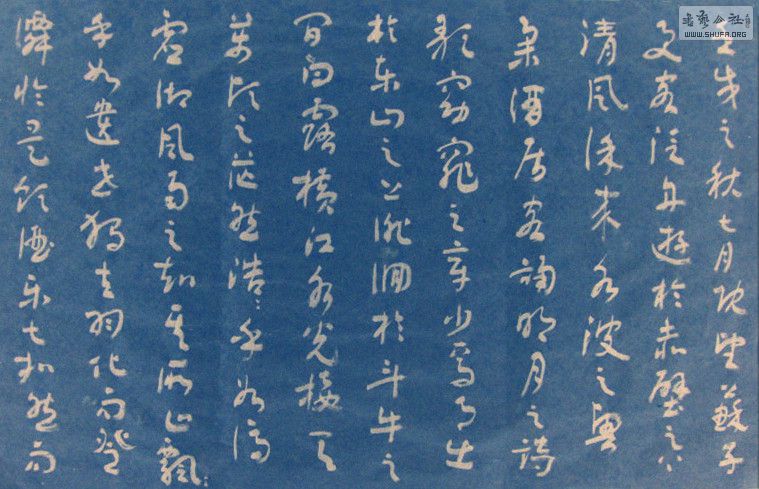 书艺公社
WWW.SHUFA.ORG
壬戌之秋七月既望蘇子
与客泛舟遊於赤壁之下
清風徐来水波不興
举酒属客誦明月之詩
歌窈窕之章少焉月出
於東山之上徘徊於斗牛之
間白露橫江水光接天
萬頃之茫然浩浩乎如馮
虚御風而不知其所止飄飄
乎如遺世獨立羽化而登
僊於是飲酒樂甚扣舷而